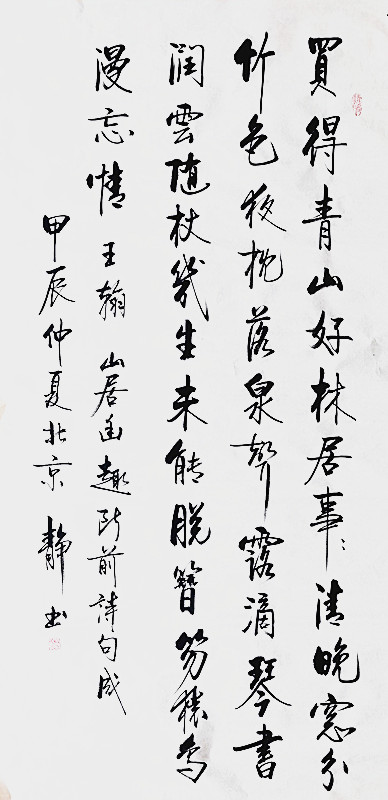 買得青山好林居事〻清晚窓分
竹色夜枕落泉聲露滴琴書
潤雲随杖幾生未能脱簪笏猿鳥
漫忘情 王翰 山居幽趣 前詩句成
甲辰仲夏北京 靜书